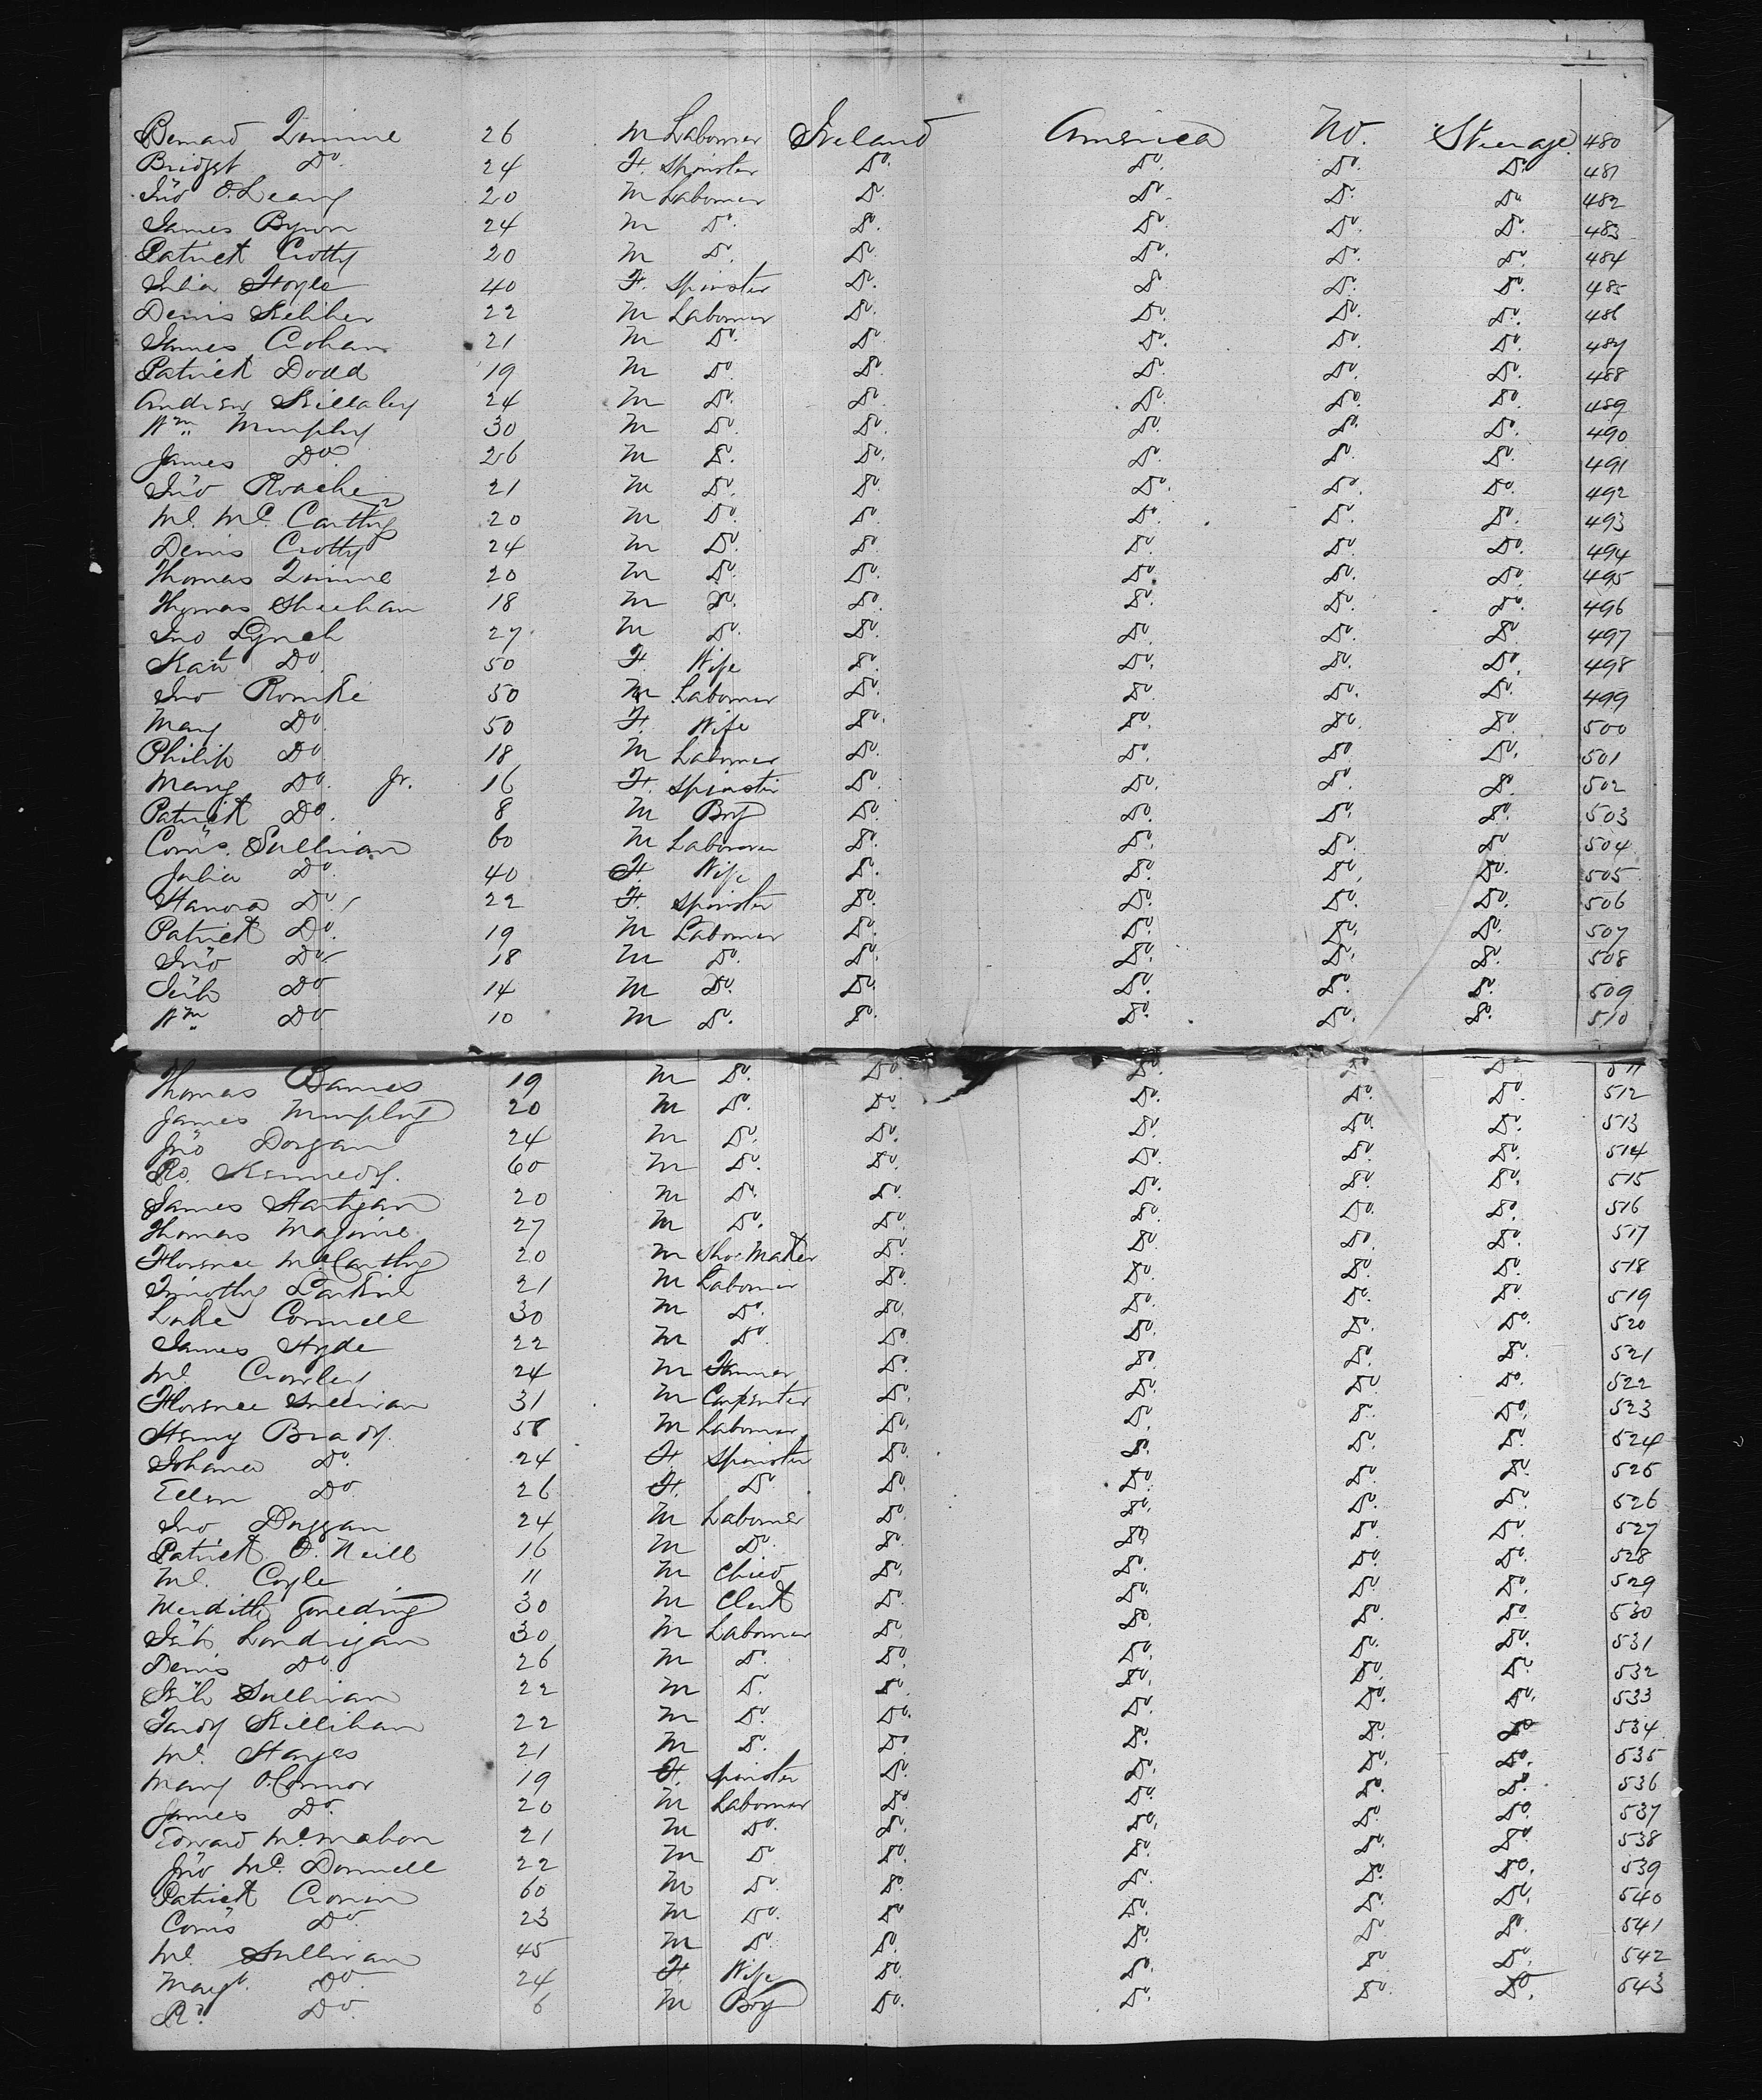 Bernard Quinne 26 M Labourer Ireland America No. Steerage 480
Bridget Do. 24 F. Spinster Do. Do. Do. Do. 481
Jno O.Leary 20 M Labourer Do. Do. Do. Do. 482
James Byron 24 M Do. Do. Do. Do. Do. 483
Patrick Crotty 20 M Do. Do. Do. Do. Do. 484
Julia Hoyle 40 F. Spinster Do. Do. Do. Do. 485
Denis Keliher 22 M Labourer Do. Do. Do. Do. 486
James Crohan 21 M Do. Do. Do. Do. Do. 487
Patrick Dodd 19 M Do. Do. Do. Do. Do. 488
Andrew Killaley 24 M Do. Do. Do. Do. Do. 489
Wm. Murphy 30 M Do. Do. Do. Do. Do. 490
James Do. 26 M Do. Do. Do. Do. Do. 491
Jno Roache 21 M Do. Do. Do. Do. Do. 492
Ml. Mc. Carthy 20 M Do. Do. Do. Do. Do. 493
Denis Crotty 24 M Do. Do. Do. Do. Do. 494
Thomas Quinne 20 M Do. Do. Do. Do. Do. 495
Thomas Sheehan 18 M Do. Do. Do. Do. Do. 496
Jno Lynch 27 M Do. Do. Do. Do. Do. 497
Kate Do. 50 F. Wife Do. Do. Do. Do. 498
Jno Rourke 50 M Labourer Do. Do. Do. Do. 499
Mary Do. 50 F. Wife Do. Do. Do. Do. 500
Philip Do. 18 M Labourer Do. Do. Do. Do. 501
Mary Do. Jr. 16 F. Spinster Do. Do. Do. Do. 502
Patrick Do. 8 M Boy Do. Do. Do. Do. 503
Corns. Sullivan 60 M Labourer Do. Do. Do. Do. 504
Julia Do. 40 F. Wife Do. Do. Do. Do. 505
Hanora Do. 22 F. Spinster Do. Do. Do. Do. 506
Patrick Do. 19 M Labourer Do. Do. Do. Do. 507
Jno Do. 18 M Do. Do. Do. Do. Do. 508
Jerh Do 14 M Do. Do. Do. Do. Do. 509
Wm. Do 10 M Do. Do. Do. Do. Do. 510
Thomas Barnes 19 M Do. Do. Do. Do. Do. 511
James Murphy 20 M Do. Do. Do. Do. Do. 512
Jno Dorgan 24 M Do. Do. Do. Do. Do. 513
Ro. Kennedy. 60 M Do. Do. Do. Do. Do. 514
James Hartigan 20 M Do. Do. Do. Do. Do. 515
Thomas Maguire 27 M Do. Do. Do. Do. Do. 516
Florence McCarthy 20 M Shoe Maker Do. Do. Do. Do. 517
Timothy Larkin 21 M Labourer Do. Do. Do. Do. 518
Luke Connell 30 M Do. Do. Do. Do. Do. 519
James Hyde 22 M Do. Do. Do. Do. Do. 520
Ml. Crowley 24 M Farmer Do. Do. Do. Do. 521
Florence Sullivan 31 M Carpenter Do. Do. Do. Do. 522
Henry Brady. 58 M Labourer Do. Do. Do. Do. 523
Johanna Do. 24 F. Spinster Do. Do. Do. Do. 524
Ellen Do. 26 F. Do. Do. Do. Do. Do. 525
Jno Duggan 24 M Labourer Do. Do. Do. Do. 526
Patrick O. Neill 16 M Do. Do. Do. Do. Do. 527
Ml. Coyle 11 M Child Do. Do. Do. Do. 528
Meredith 30 M Clerk Do. Do. Do. Do. 529
Jerh Londrigan 30 M Labourer Do. Do. Do. Do. 530
Denis Do. 26 M Do. Do. Do. Do. Do. 531
Jerh Sullivan 22 M Do. Do. Do. Do. Do. 532
Killihan 22 M Do. Do. Do. Do. Do. 533
Ml. Hayes 21 M Do. Do. Do. Do. Do. 534
Mary O.Connor 19 F. Spinster Do. Do. Do. Do. 535
James Do. 20 M Labourer Do. Do. Do. Do. 536
Edward Mc.Mahon 21 M Do. Do. Do. Do. Do. 537
Jno Mc. Donnell 22 M Do. Do. Do. Do. Do. 538
Patrick Cronin 60 M Do. Do. Do. Do. Do. 539
Corns Do. 23 M Do. Do. Do. Do. Do. 540
Ml. Sullivan 45 M Do. Do. Do. Do. Do. 541
Margt. Do. 24 F. Wife Do. Do. Do. Do. 542
Rd. Do. 6 M Boy Do. Do. Do. Do. 543